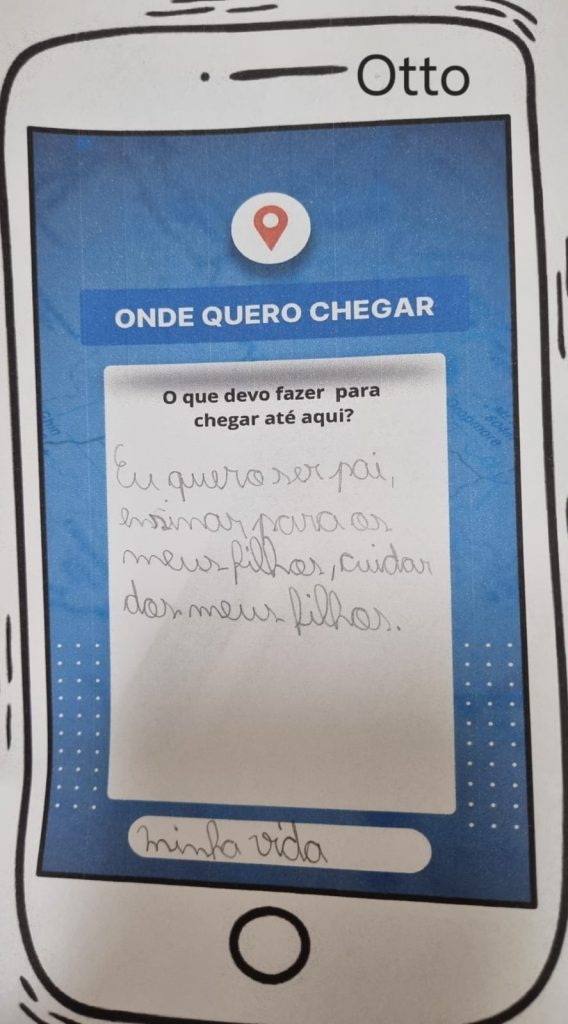 Otto
ONDE QUERO CHEGAR
O que devo fazer para
chegar até aqui?
Eu quero ser pai,
ensinar para os
meus filhos, cuidar
dos meus filhos.
minha vida